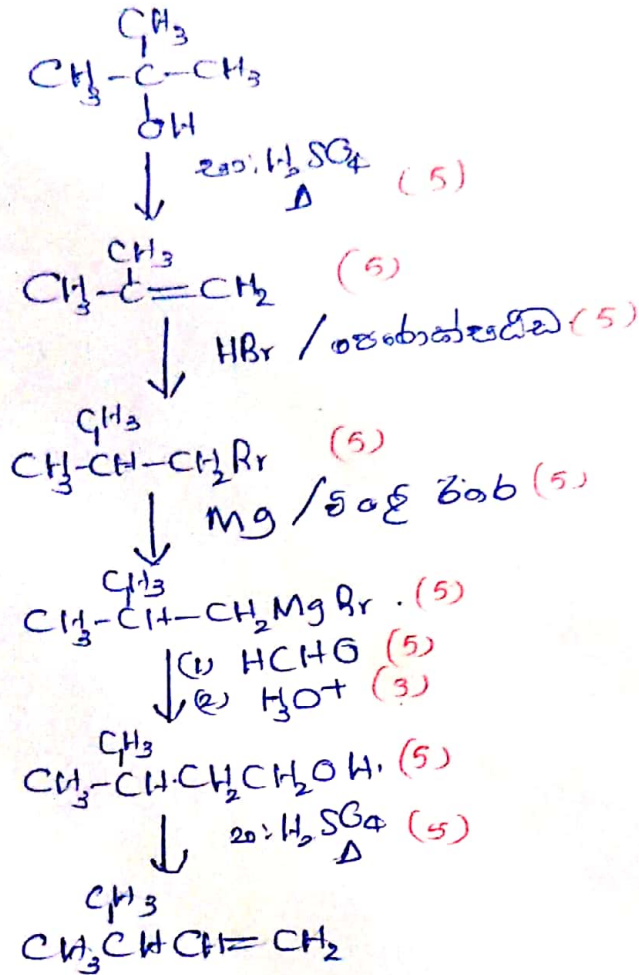 CH3
CH3-C-CH3
OH
H2SO4 (5)
Δ
CH3
CH3-C=CH2 (5)
HBr / පෙරොක්සයිඩ (5)
CH3
CH3-CH-CH2Br (5)
Mg / වියළි ඊතර (5)
CH3
CH3-CH-CH2MgBr. (5)
(1) HCHO (5)
(2) H3O+ (3)
CH3
CH3-CH·CH2CH2OH. (5)
H2SO4 (5)
Δ
CH3
CH3CHCH=CH2